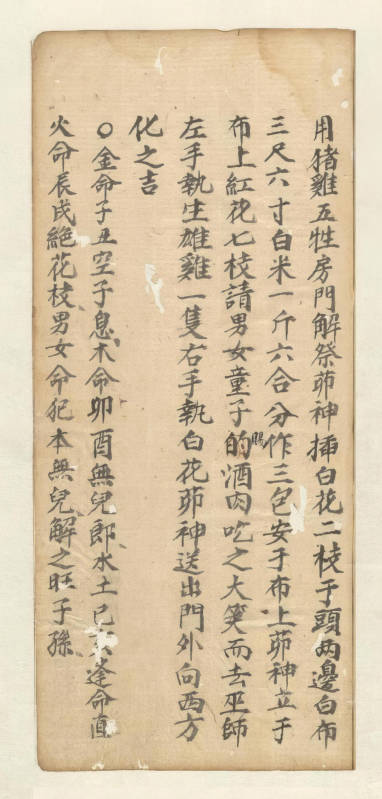 用猪雞五牲房門解祭茆神插白花二枝于頭两邊白布
三尺六寸白米一斤六合分作三包安于布上茆神立于
布上紅花七枝請男女童子的賜酒肉吃之大笑而去巫師
左手執生雄雞一隻右手執白花茆神送出門外向西方
化之吉
〇金命子丑空子息木命卯酉無兒郎水土巳逢命直
火命辰戌絶花枝男女命犯本無兒解之旺子孫